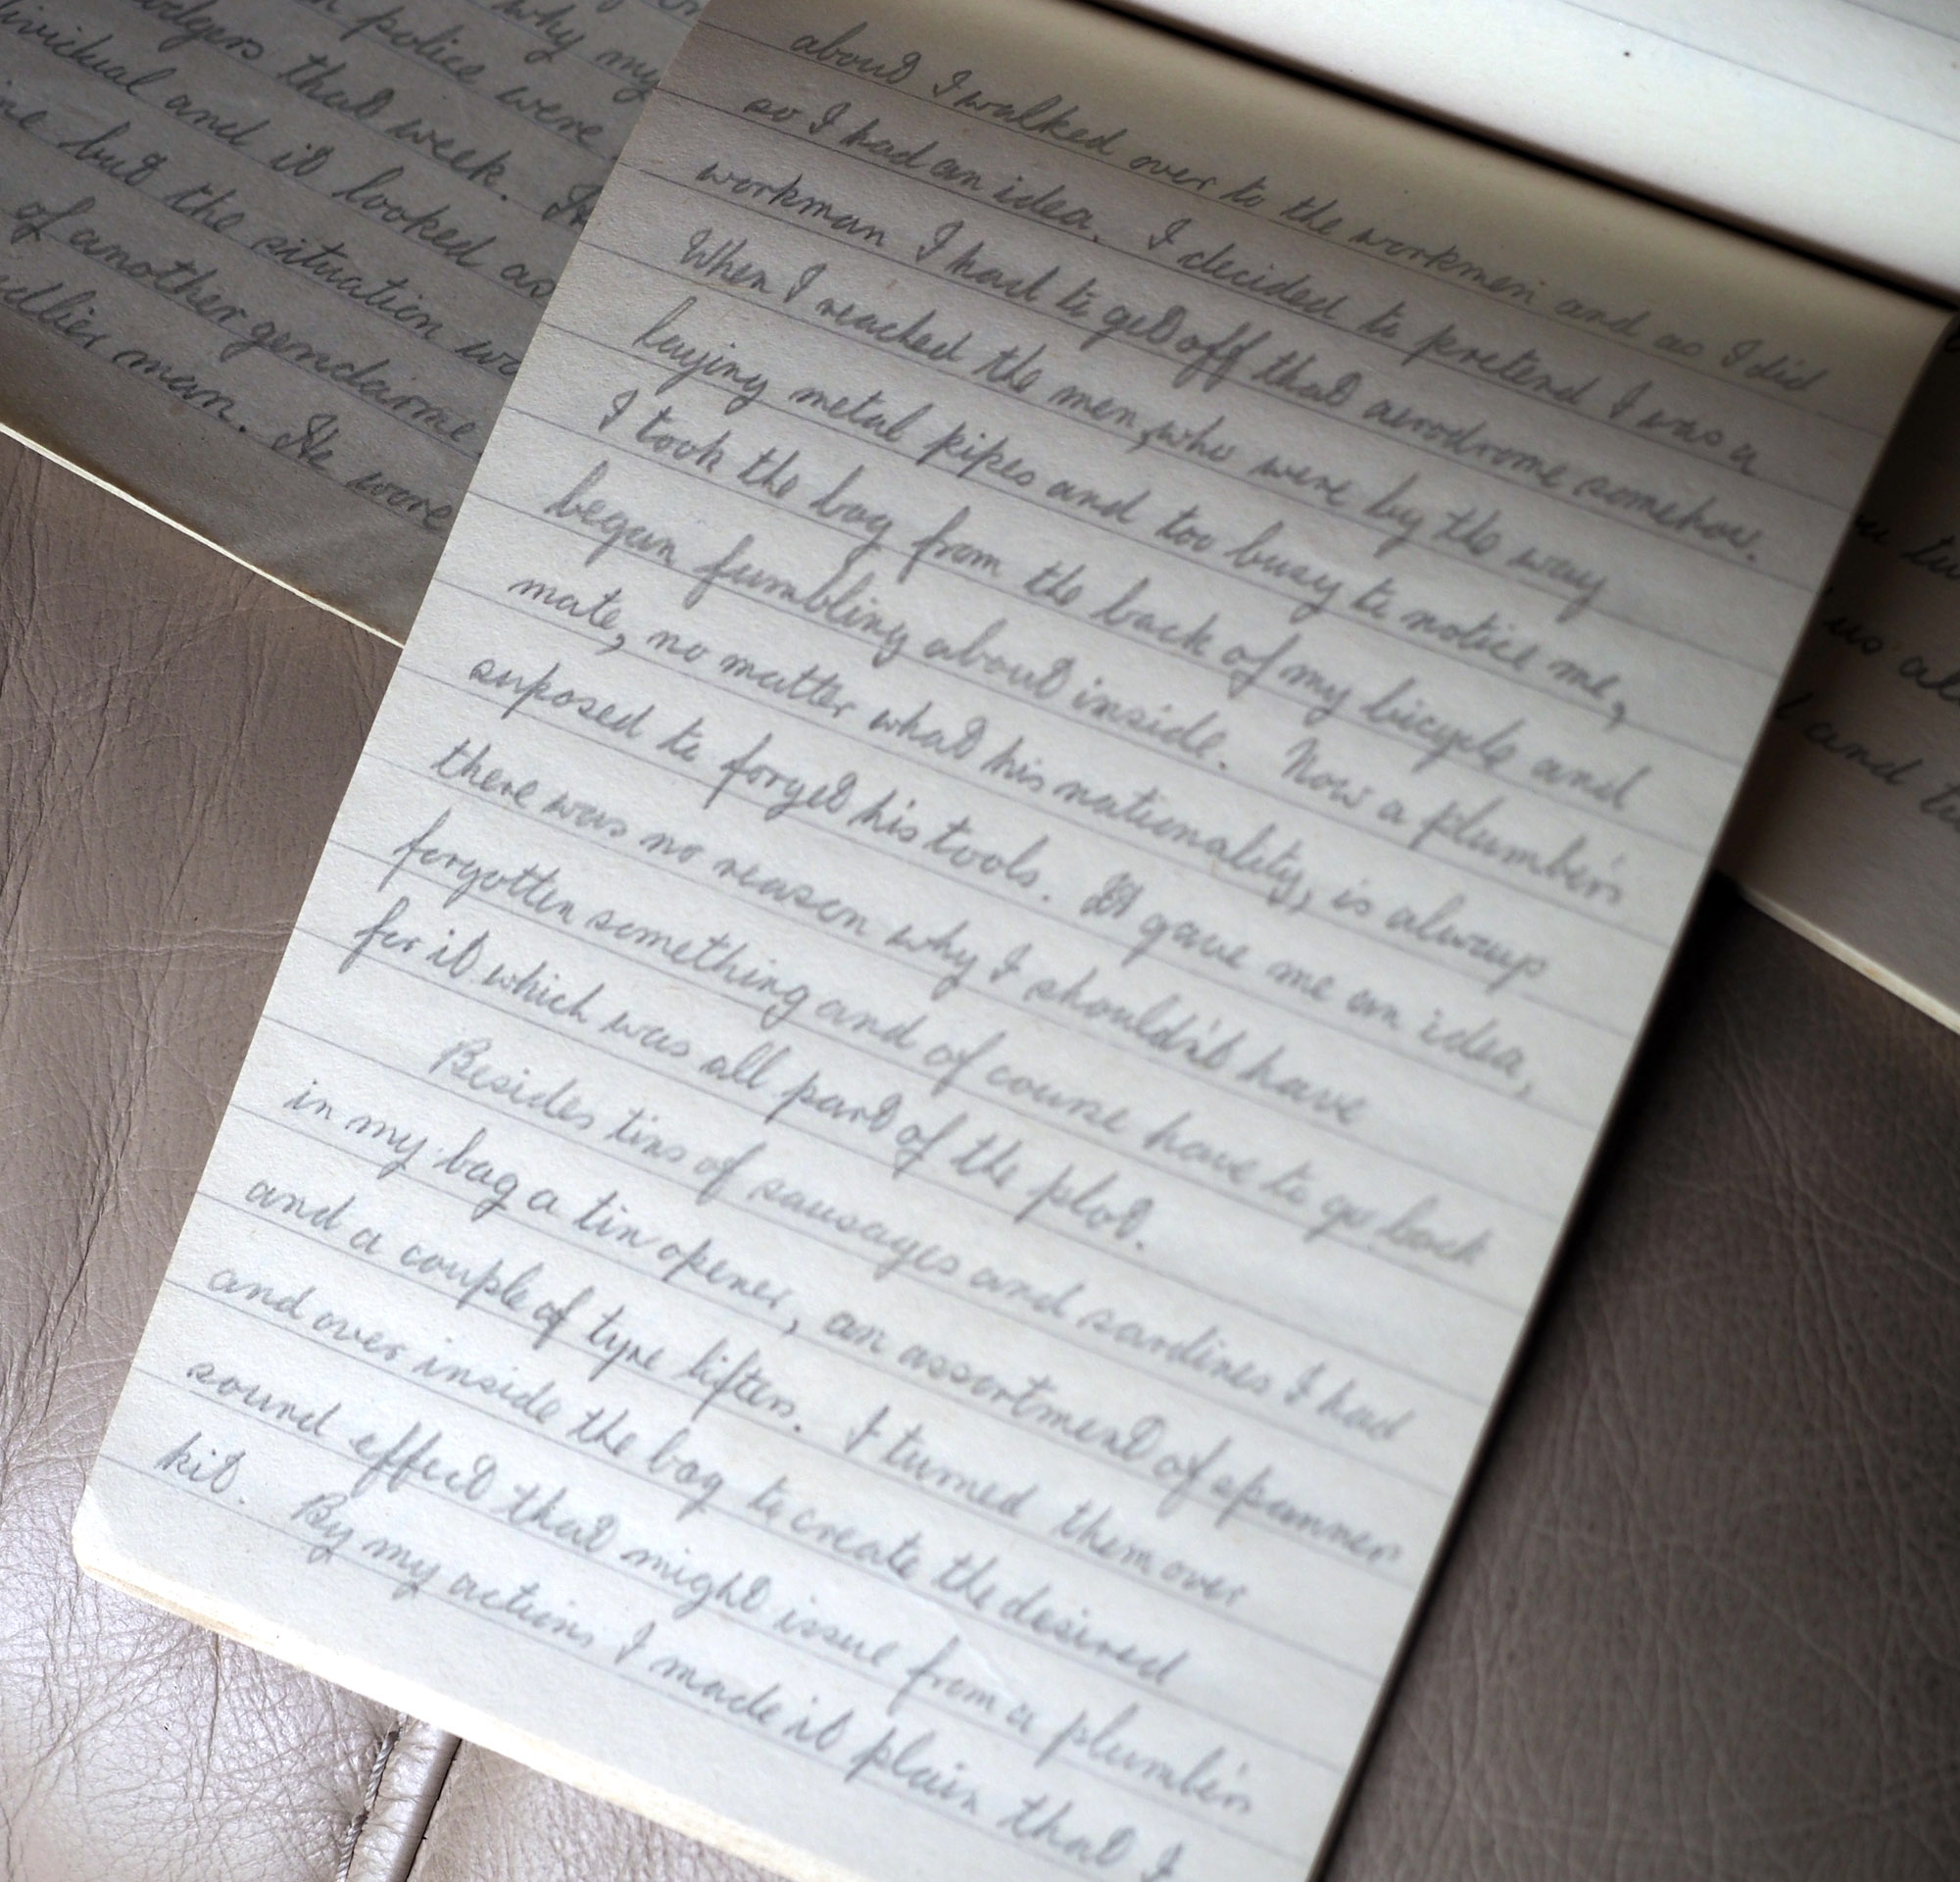 why my
police were
odgers that week.
ividual and it looked as
ne but the situation
of another gendarme
dlier man. He wore
about I walked over to the workmen and as I did
so I had an idea. I decided to pretend I was a
workman I had to get off that aerodrome somehow.
When I reached the men, who were by the way
laying metal pipes and too busy to notice me,
I took the bag from the back of my bicycle and
began fumbling about inside. Now a plumber's
mate, no matter what his nationality, is always
suposed to forget his tools. It gave me an idea,
there was no reason why I shouldn't have
forgotten something and of course have to go back
for it which was all part of the plot.
Besides tins of sausages and sardines I had
in my bag a tin opener, an assortment of spanners
and a couple of tyre lifters. I turned them over
and over inside the bag to create the desired
sound effect that might issue from a plumber's
kit. By my actions I made it plain that I
us
and